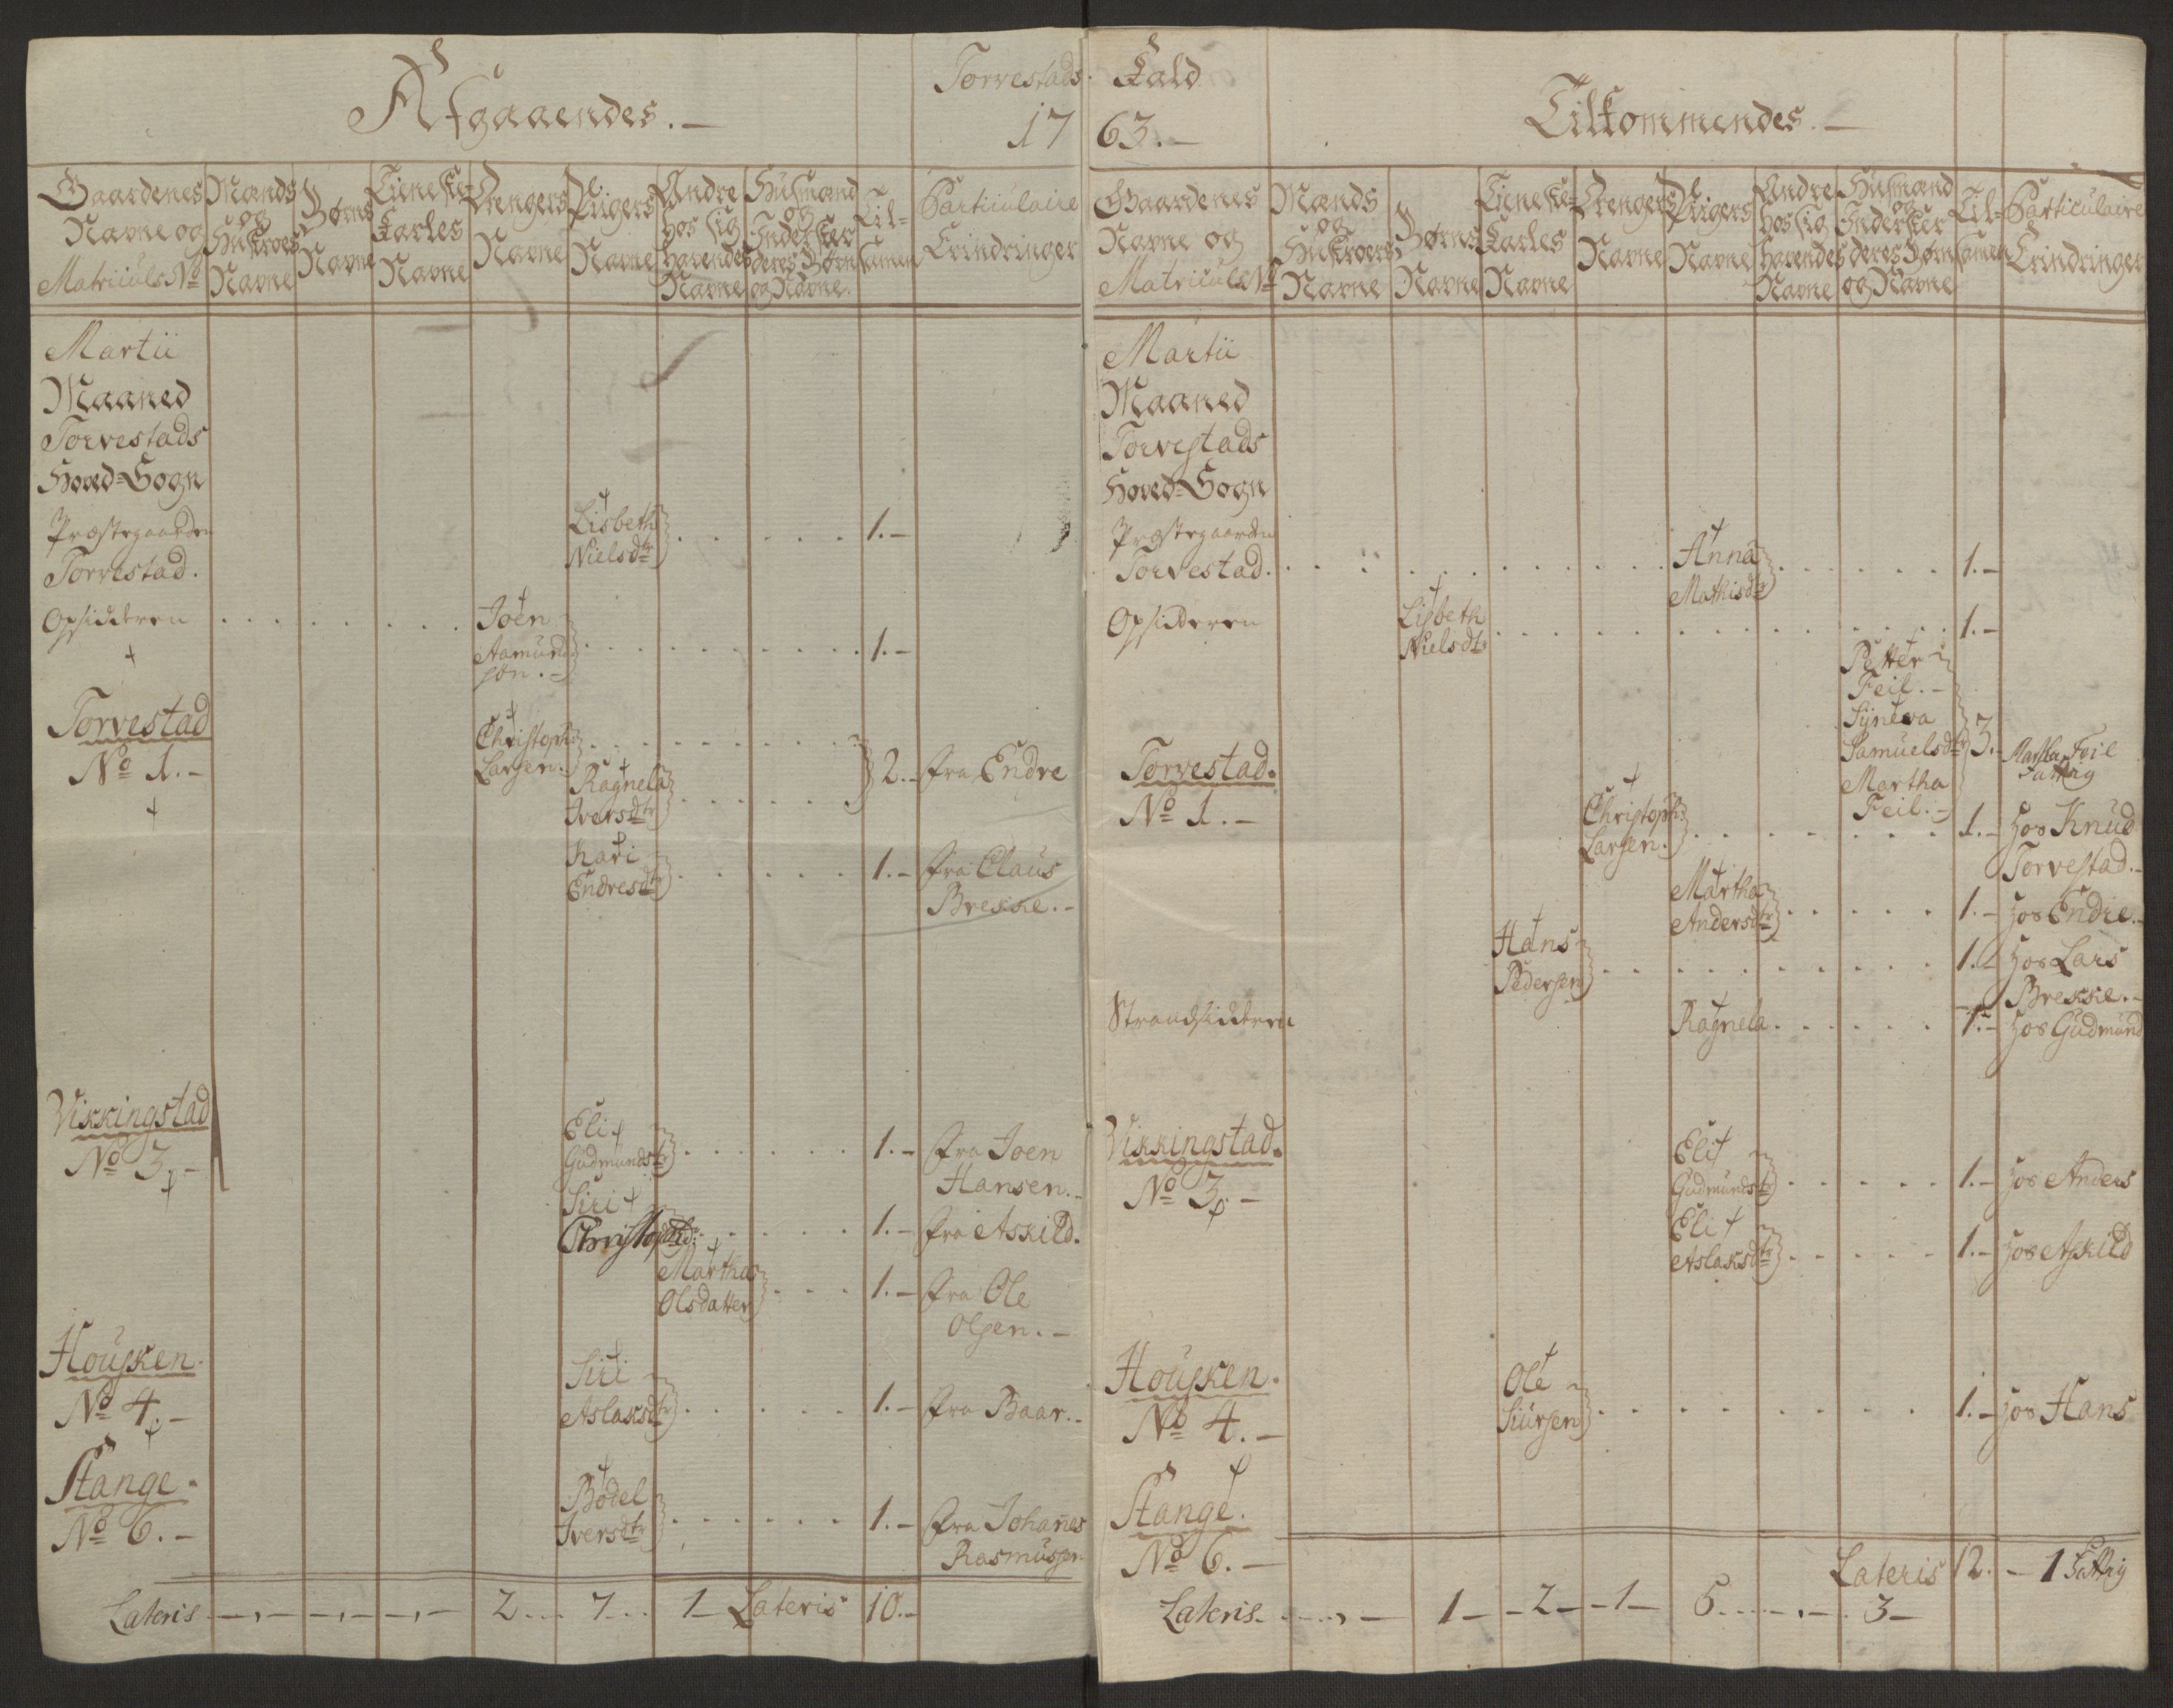 Afgaaendes.-
Torvestads
17
Gaardenes Navne og Matriculs No
Mænds og Hustroes Navne
Børns Navne
Tieneste-Karles Navne
Drengers Navne
Pigers Navne
Andre hos sig havendes Navne
Husmænd og Inderster deres Børn og Navne.
Til-samen
Particulaire Erindringer
Martii
Maaned
Torvestads
Hoved-Sogn
Præstegaarden
Torvestad.
Lisbeth
Nielsdtr . . . . . 1.-
Opsidderen . . . . . . . . Joen
Aamund-
søn.- . . . . . . . . . 1.-
Torvestad
No 1.-
Christoph:
Larsen. . . . . . . . . .
Ragnela
Iversdtr . . . . . 2.- fra Endre
Kari
Endresdtr . . . . . 1.- fra Claus
Brekke.-
Vikkingstad
No 3.-
Eli
Gudmundsdtr . . . . . . 1.- fra Joen
Hansen.-
Siri
Christophdtr: . . . . . 1.- fra Askild.
Martha
Olsdatter . . . 1.- fra Ole
Olsen.-
Housken.
No 4.-
Siri
Aslaksdtr . . . . . 1.- fra Baar.-
Stange.
No 6.-
Bodel
Iversdtr . . . . . . 1.- fra Johanes
Rasmusen
Lateris -,- -,- -,- 2... 7... 1- Lateris 10.-
Kald
63.-
Tilkommendes.-
Gaardenes Navne og Matricule No
Mænds og Hustroers Navne
Børns Navne
Tieneste-Karles Navne
Drengers Navne
Pigers Navne
Andre hos sig Havendes Navne
Husmænd og Inderster deres Børn og Navne
Til-samen
Particulaire Erindringer
Martii
Maaned
Torvestads
Hoved-Sogn
Præstegaarden
Torvestad. . . . . . . . . . . Anna
Mathisdtr . . . . . . 1.-
Opsidderen
Lisbeth
Nielsdtr . . . . . . . . . . . 1.-
Petter
Feil.-
Syneva
Samuelsdtr 3.- Martha Feil
Fattig
Martha
Feil.-
Torvestad.
No 1.-
Christoph:
Larsen. . . . . . . . . 1.- hos Knud
Torvestad.-
Martha
Andersdtr . . . . . 1.- hos Endre.-
Hans
Pedersen . . . . . . . . . . 1.- hos Lars
Brekke.-
Strandsidderen
Ragnela . . . . . . 1.- hos Gudmund
Vikkingstad.
No 3.-
Eli
Gudmundsdtr . . . . . 1.- hos Anders
Eli
Aslaksdtr . . . . . 1.- hos Askild
Housken.
No 4.-
Ole
Siursen . . . . . . . . 1.- hos Hans
Stange.
No 6.-
Lateris 12.- 1 Fattig
Lateris. . . . ,- 1- -2- -1- 5... -,-. 3-